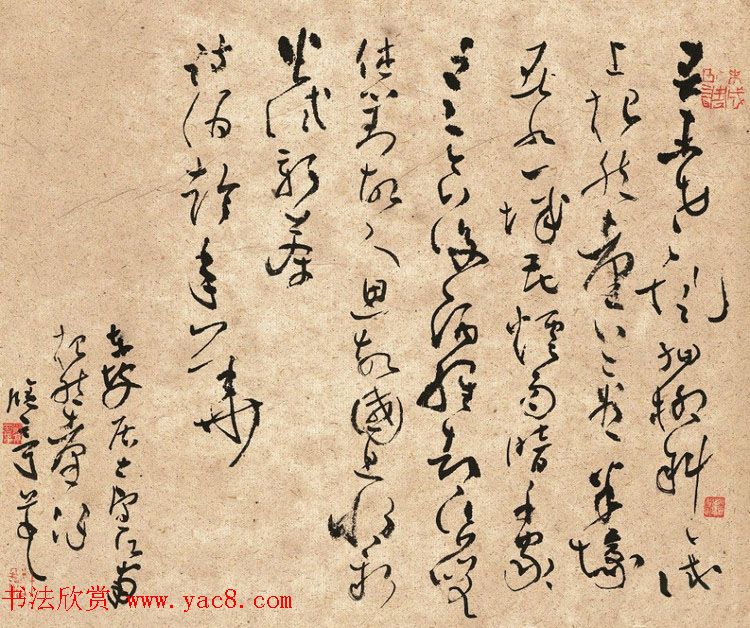 春未老風细柳斜々試
上超然臺上看半壕
春水一城花煙雨暗千家
寒食後酒醒却咨嗟
休對故人思故國且将新
火試新茶
詩酒趁年華
東坡居士望江南
超然臺作
书法欣赏 www.yac8.com